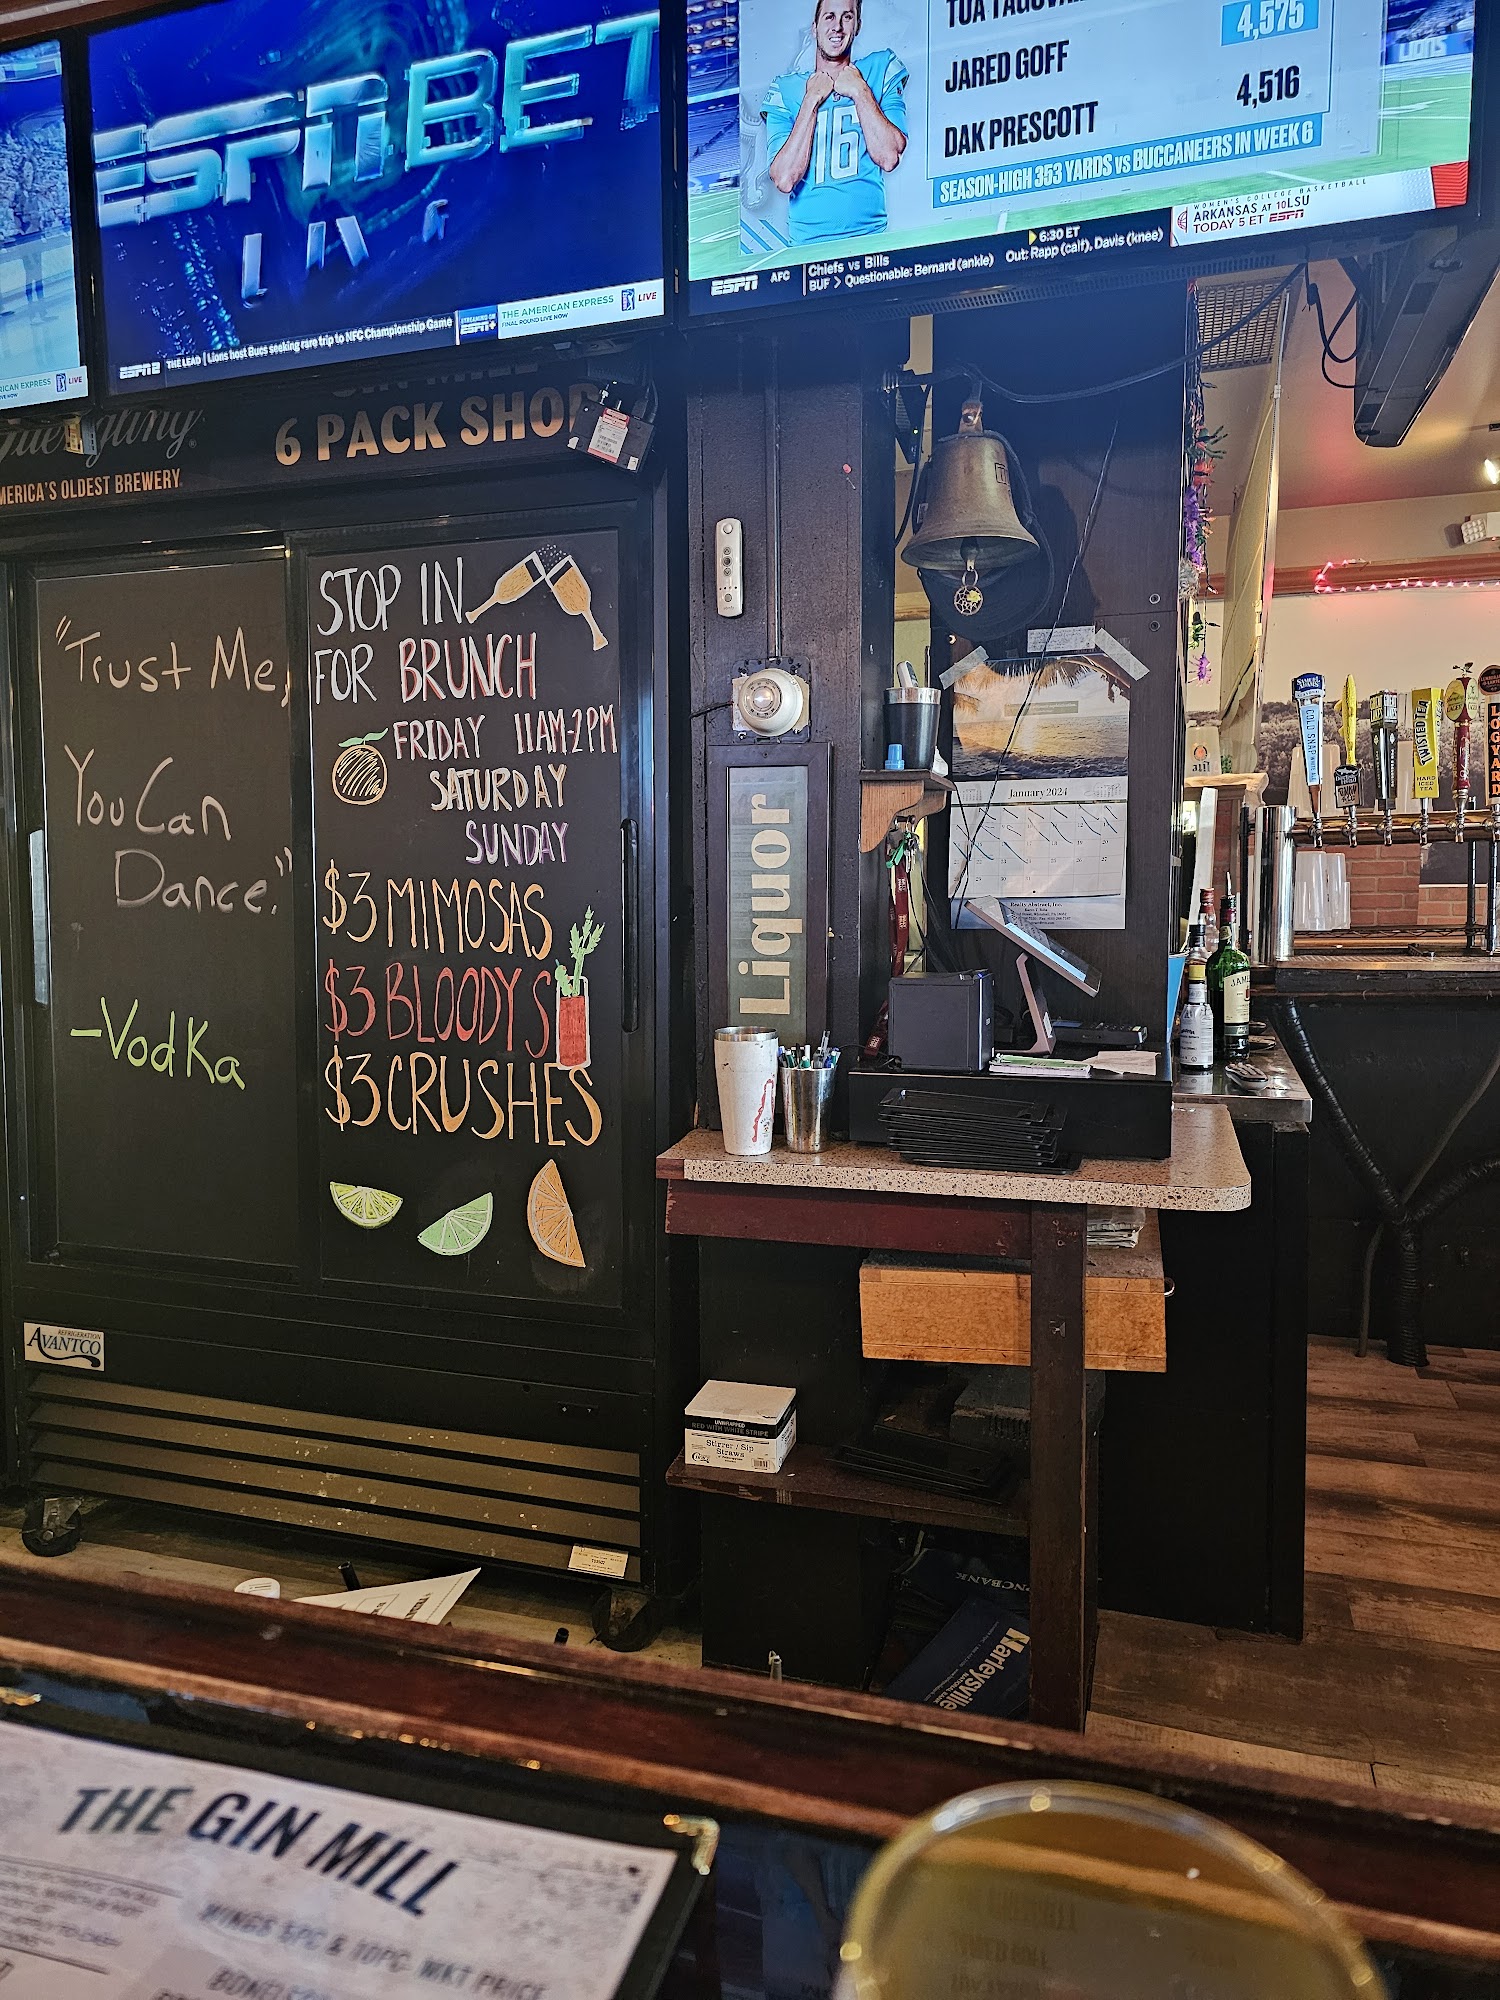 ESPN BET
LIVE
ESPN2 THE LEAD | Lions host Bucs seeking rare trip to NFC Championship Game
STREAMING ON ESPN+
THE AMERICAN EXPRESS
FINAL ROUND LIVE NOW
LIVE
AMERICAN EXPRESS
LIVE
4,575
JARED GOFF
4,516
DAK PRESCOTT
SEASON-HIGH 353 YARDS vs BUCCANEERS IN WEEK 6
16
LIONS
WOMEN'S COLLEGE BASKETBALL
ARKANSAS AT 10LSU
TODAY 5 ET ESPN
6:30 ET
ESPN AFC Chiefs vs Bills
BUF > Questionable: Bernard (ankle) Out: Rapp (calf), Davis (knee)
Yuengling
AMERICA'S OLDEST BREWERY
6 PACK SHOP
"Trust Me,
You Can
Dance."
-Vodka
STOP IN
FOR BRUNCH
FRIDAY 11AM-2PM
SATURDAY
SUNDAY
$3 MIMOSAS
$3 BLOODY'S
$3 CRUSHES
Liquor
January 2024
Realty Abstract, Inc.
SAMUEL ADAMS
COLD SNAP
TWISTED TEA
HARD ICED TEA
LOGYARD
REFRIGERATION
AVANTCO
UNWRAPPED
RED WITH WHITE STRIPE
Stirrer / Sip
Straws
PNCBANK
Harleysville
THE GIN MILL
WINGS 5PC & 10PC MKT PRICE